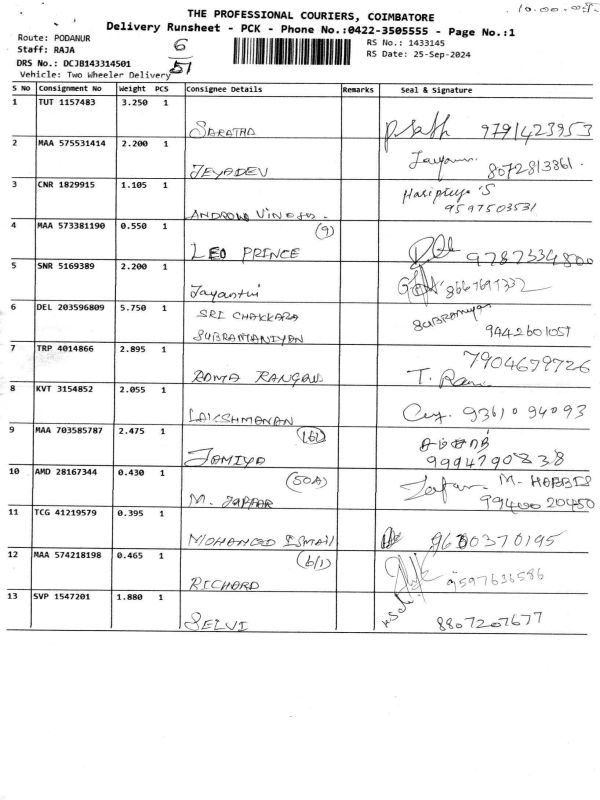 THE PROFESSIONAL COURIERS, COIMBATORE
Delivery Runsheet - PCK - Phone No.:0422-3505555 - Page No.:1
Route: PODANUR
Staff: RAJA
DRS No.: DCJB143314501
Vehicle: Two Wheeler Delivery
6
51
RS No.: 1433145
RS Date: 25-Sep-2024
S No Consignment No Weight PCS Consignee Details Remarks Seal & Signature
1 TUT 1157483 3.250 1
SARATHA 9791423953
2 MAA 575531414 2.200 1
JEYADEV 8072813861
3 CNR 1829915 1.105 1
ANDROW VINOTH Haripriya S
9597503531
4 MAA 573381190 0.550 1 (9)
LEO PRINCE 9787334800
5 SNR 5169389 2.200 1
Jayanthi 8667697332
6 DEL 203596809 5.750 1
SRI CHAKKARA
SUBRAMANIYAN
9442601051
7 TRP 4014866 2.895 1 7904679726
ROMA RANGAN T.
8 KVT 3154852 2.055 1
LAKSHMANAN 9361094093
9 MAA 703585787 2.475 1
JOMIYA 9994790838
10 AMD 28167344 0.430 1 (50A)
M. JAFFAR 9940020450
11 TCG 41219579 0.395 1
MOHAMED ISMAIL 9600370195
12 MAA 574218198 0.465 1 (6/1)
RICHORD 9597636586
13 SVP 1547201 1.880 1
SELVI 8807207677